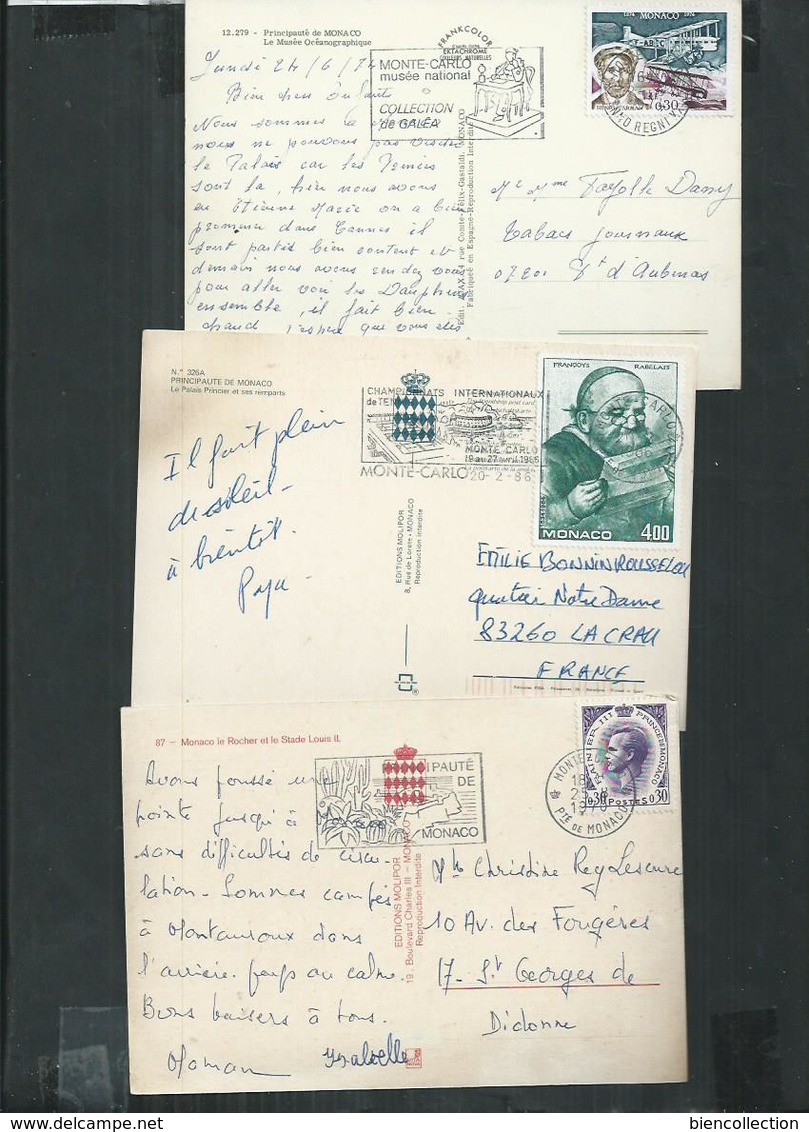 12.279 - Principauté de MONACO
Le Musée Océanographique
FRANKCOLOR
EKTACHROME
COULEURS NATURELLES
MONTE-CARLO
musée national
COLLECTION
de GALÉA
1974 MONACO 1974
0,30
lundi 24/6/74
Bien chers Enfants
Nous sommes à
nous ne pouvons pas visiter
le Palais car les Princes
sont là, hier nous avons
eu Etienne Marie on a bien
promener dans Cannes il
sont partis bien content et
demain nous avons rendez vous
pour aller voir les Dauphins
ensemble, il fait bien
chaud j'espère que vous êtes
rue Comte-Félix-Gastaldi, MONACO
Fabriquée en Espagne-Reproduction Interdite
Mr Mme Fayolle Dany
Tabacs journaux
07200 St d'Aubenas
N.° 326A
PRINCIPAUTE DE MONACO
Le Palais Princier et ses remparts
CHAMPIONNATS INTERNATIONAUX
de TENNIS
MONTE CARLO
19 au 27 avril 1986
MONTE-CARLO 20-2-86
FRANÇOYS RABELAIS
MONACO 4,00
Il fait plein
de soleil -
à bientôt.
Papa
EDITIONS MOLIPOR
8, Rue de Lorète - MONACO
Reproduction interdite
EMILIE BONNIN ROUSSELOU
quartier Notre Dame
83260 LA CRAU
FRANCE
87 - Monaco le Rocher et le Stade Louis II.
PRINCIPAUTÉ
DE
MONACO
RAINIER III PRINCE DE MONACO
0,30 POSTES 0,30
MONTE
18
25
1970
PTÉ DE MONACO
Avons poussé une
pointe jusqu'à
sans difficultés de circu
lation - Sommes campés
à Montauroux dans
l'arrière-pays au calme.
Bons baisers à tous.
Maman Ysabelle
EDITIONS MOLIPOR
19, Boulevard Charles III - MONACO
Reproduction Interdite
Mlle Christine Rey Lescure
10 Av. des Fougères
17- St Georges de
Didonne
biencollection